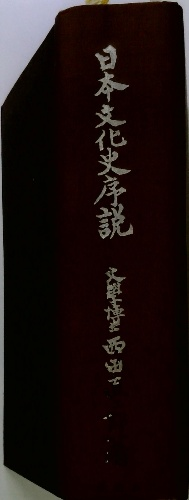 日本文化史序説
文學博士 西田